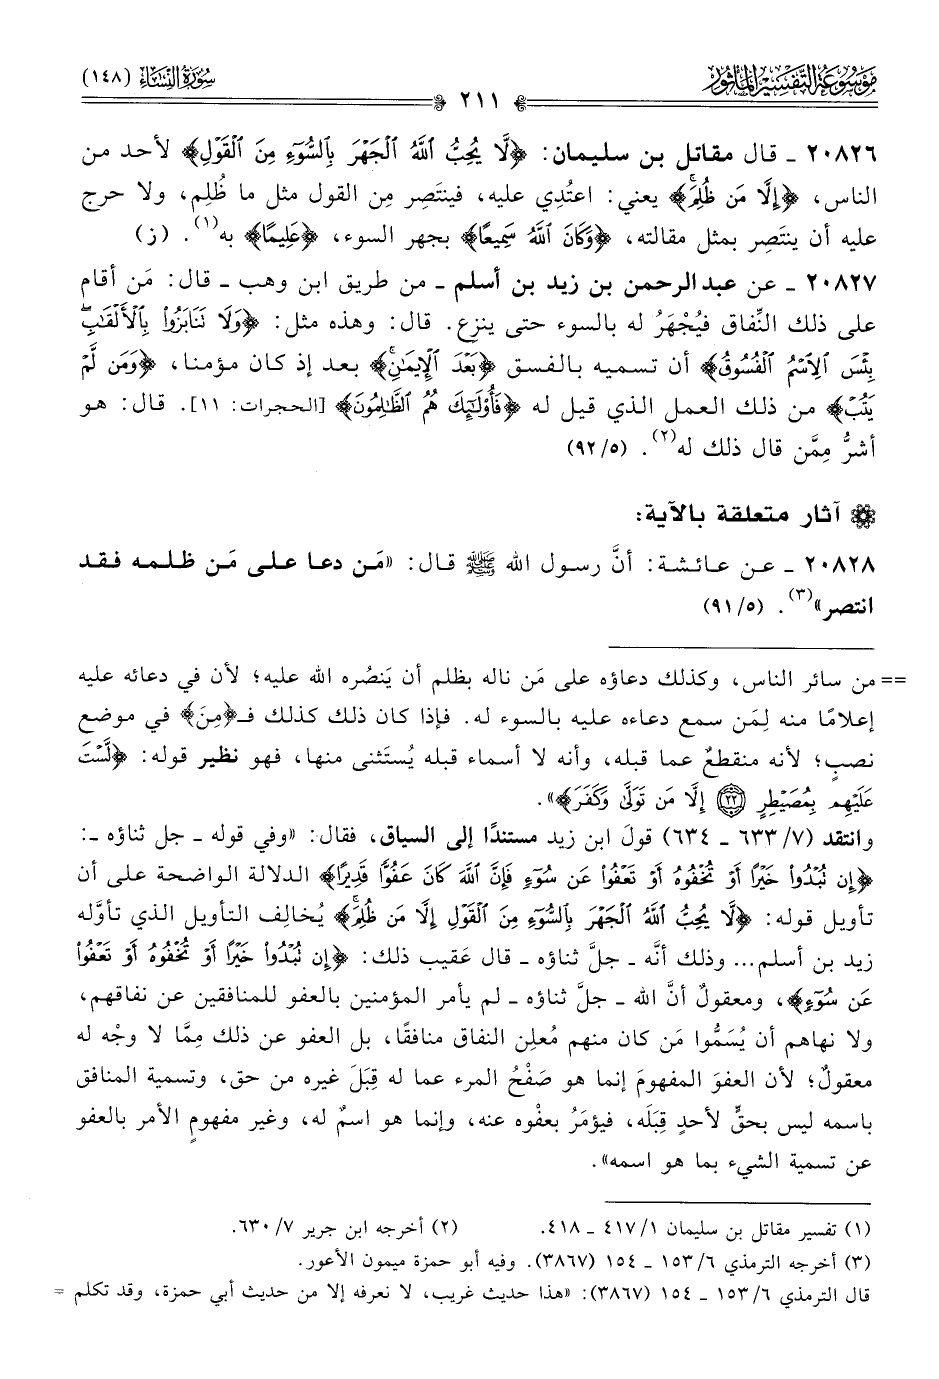 مَوْسُوعَةُ التَّفْسِيرِ المَأْثُورِ
سُورَةُ النِّسَاءِ (١٤٨)
٢١١
٢٠٨٢٦ ـ قال مقاتل بن سليمان: ﴿لَّا يُحِبُّ ٱللَّهُ ٱلْجَهْرَ بِٱلسُّوٓءِ مِنَ ٱلْقَوْلِ﴾ لأحد من
الناس، ﴿إِلَّا مَن ظُلِمَۚ﴾ يعني: اعتُدِي عليه، فينتَصِر مِن القول مثل ما ظُلِم، ولا حرج
عليه أن ينتَصِر بمثل مقالته، ﴿وَكَانَ ٱللَّهُ سَمِيعًا﴾ بجهر السوء، ﴿عَلِيمًا﴾ به(١). (ز)
٢٠٨٢٧ ـ عن عبدالرحمن بن زيد بن أسلم ـ من طريق ابن وهب ـ قال: مَن أقام
على ذلك النِّفاق فيُجْهَرُ له بالسوء حتى ينزع. قال: وهذه مثل: ﴿وَلَا تَنَابَزُوا۟ بِٱلْأَلْقَٰبِۖ
بِئْسَ ٱلِٱسْمُ ٱلْفُسُوقُ﴾ أن تسميه بالفسق ﴿بَعْدَ ٱلْإِيمَٰنِۚ﴾ بعد إذ كان مؤمنا، ﴿وَمَن لَّمْ
يَتُبْ﴾ من ذلك العمل الذي قيل له ﴿فَأُو۟لَٰٓئِكَ هُمُ ٱلظَّٰلِمُونَ﴾ [الحجرات: ١١]. قال: هو
أشرُّ مِمَّن قال ذلك له(٢). (٩٢/٥)
آثار متعلقة بالآية:
٢٠٨٢٨ ـ عن عائشة: أنَّ رسول الله ﷺ قال: «مَن دعا على مَن ظلمه فقد
انتصر»(٣). (٩١/٥)
== من سائر الناس، وكذلك دعاؤه على مَن ناله بظلم أن يَنصُره الله عليه؛ لأن في دعائه عليه
إعلامًا منه لِمَن سمع دعاءه عليه بالسوء له. فإذا كان ذلك كذلك فـ﴿مِنَ﴾ في موضع
نصبٍ؛ لأنه منقطعٌ عما قبله، وأنه لا أسماء قبله يُستَثنى منها، فهو نظير قوله: ﴿لَّسْتَ
عَلَيْهِم بِمُصَيْطِرٍ ٢٢ إِلَّا مَن تَوَلَّىٰ وَكَفَرَ﴾».
وانتقد (٦٣٣/٧ ـ ٦٣٤) قولَ ابن زيد مستندًا إلى السياق، فقال: «وفي قوله ـ جل ثناؤه ـ:
﴿إِن تُبْدُوا۟ خَيْرًا أَوْ تُخْفُوهُ أَوْ تَعْفُوا۟ عَن سُوٓءٍ فَإِنَّ ٱللَّهَ كَانَ عَفُوًّا قَدِيرًا﴾ الدلالة الواضحة على أن
تأويل قوله: ﴿لَّا يُحِبُّ ٱللَّهُ ٱلْجَهْرَ بِٱلسُّوٓءِ مِنَ ٱلْقَوْلِ إِلَّا مَن ظُلِمَۚ﴾ يُخالِف التأويل الذي تأوَّله
زيد بن أسلم... وذلك أنَّه ـ جلَّ ثناؤه ـ قال عَقيب ذلك: ﴿إِن تُبْدُوا۟ خَيْرًا أَوْ تُخْفُوهُ أَوْ تَعْفُوا۟
عَن سُوٓءٍ﴾، ومعقولٌ أنَّ الله ـ جلَّ ثناؤه ـ لم يأمر المؤمنين بالعفو للمنافقين عن نفاقهم،
ولا نهاهم أن يُسَمُّوا مَن كان منهم مُعلِن النفاق منافقًا، بل العفو عن ذلك مِمَّا لا وجْه له
معقولٌ؛ لأن العفوَ المفهومَ إنما هو صَفْحُ المرء عما له قِبَلَ غيره من حق، وتسمية المنافق
باسمه ليس بحقٍّ لأحدٍ قِبَله، فيؤمَرُ بعفْوه عنه، وإنما هو اسمٌ له، وغير مفهومٍ الأمر بالعفو
عن تسمية الشيء بما هو اسمه».
(١) تفسير مقاتل بن سليمان ٤١٧/١ ـ ٤١٨. (٢) أخرجه ابن جرير ٦٣٠/٧.
(٣) أخرجه الترمذي ١٥٣/٦ ـ ١٥٤ (٣٨٦٧). وفيه أبو حمزة ميمون الأعور.
قال الترمذي ١٥٣/٦ ـ ١٥٤ (٣٨٦٧): «هذا حديث غريب، لا نعرفه إلا من حديث أبي حمزة، وقد تكلم =